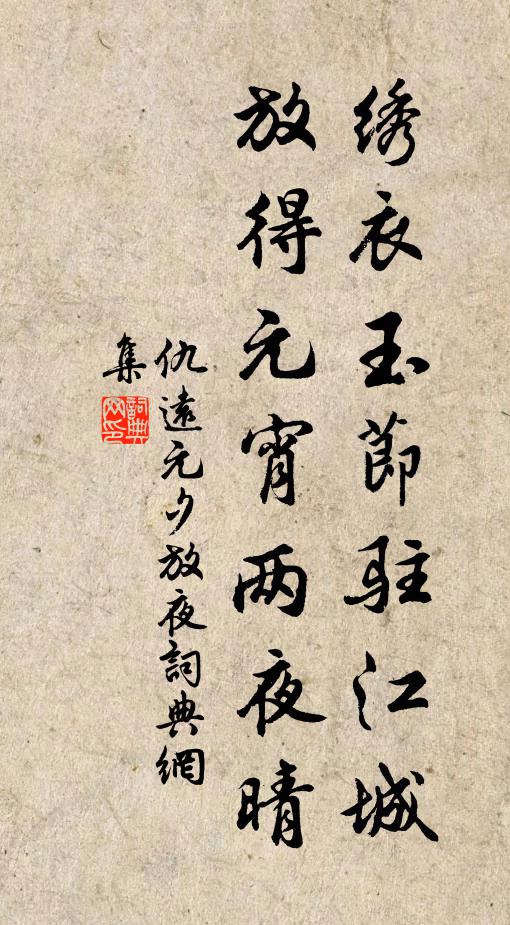 绣衣玉節驻江城
放得元宵两夜晴
仇遠元夕放夜詞典網
集
詞典網印